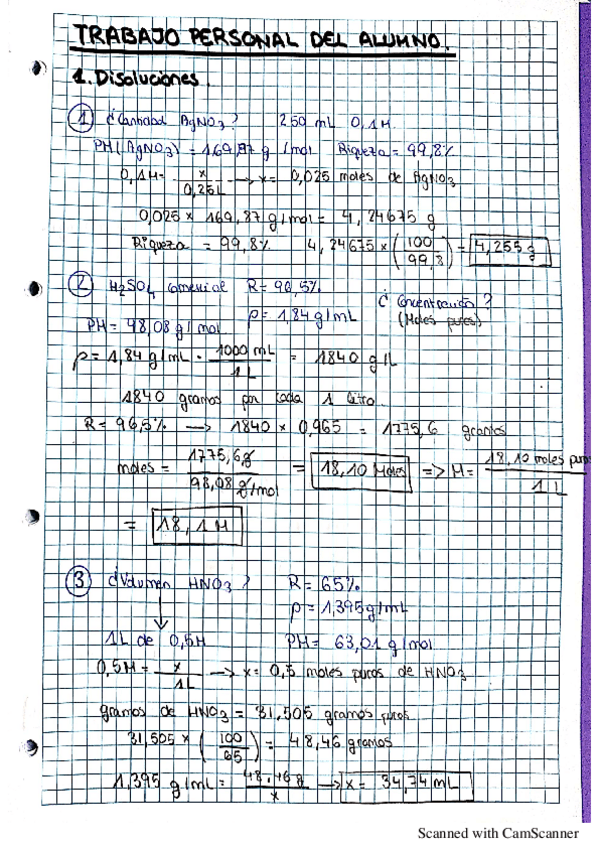 TRABAJO PERSONAL DEL ALUMNO.
1. Disoluciones.
① ¿Cantidad AgNO3? 250 mL 0,1M.
PM(AgNO3) = 169,87 g/mol Riqueza = 99,8%
0,1M = x / 0,25L → x = 0,025 moles de AgNO3
0,025 × 169,87 g/mol = 4,24675 g
Riqueza = 99,8% 4,24675 × (100 / 99,8) = 4,255 g
② H2SO4 comercial R = 96,5% ¿Concentración?
PM = 98,08 g/mol ρ = 1,84 g/mL (Moles puros)
ρ = 1,84 g/mL · 1000 mL / 1L = 1840 g/L
1840 gramos por cada 1 litro
R = 96,5% → 1840 × 0,965 = 1775,6 gramos
moles = 1775,6g / 98,08 g/mol = 18,10 Moles => M = 18,10 moles puros / 1L
= 18,1 M
③ ¿Volumen HNO3? R = 65%
ρ = 1,395 g/mL
1L de 0,5M PM = 63,01 g/mol
0,5M = x / 1L → x = 0,5 moles puros de HNO3
gramos de HNO3 = 31,505 gramos puros
31,505 × (100 / 65) = 48,46 gramos
1,395 g/mL = 48,46 g / x → x = 34,74 mL
Scanned with CamScanner